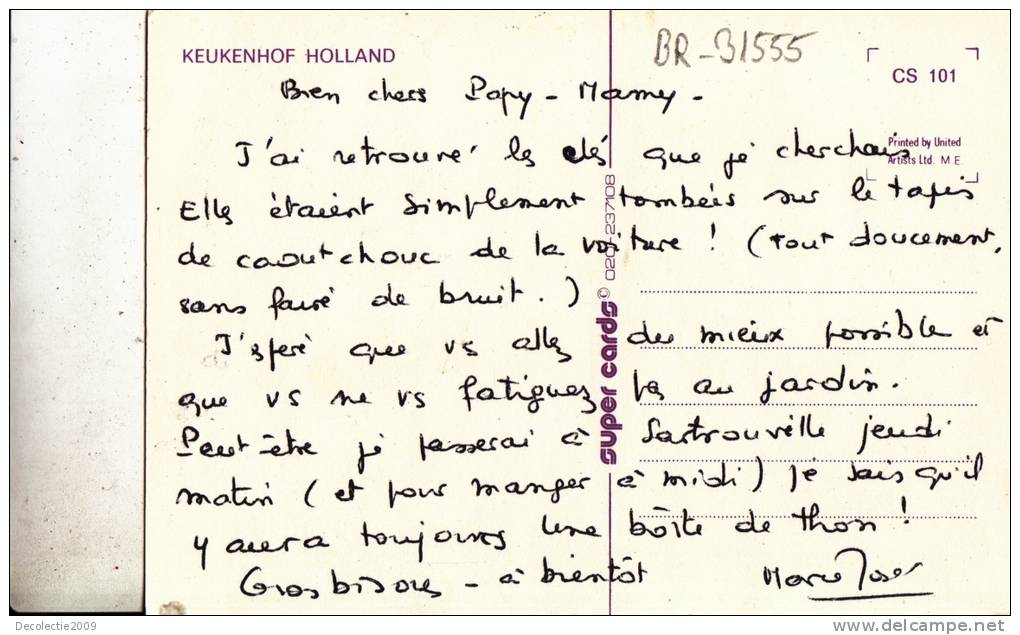 KEUKENHOF HOLLAND
BR-31555
CS 101
Printed by United
Artists Ltd. M.E
Bien chers Papy - Mamy -
J'ai retrouvé les clés que je cherchais
Elles étaient simplement tombées sur le tapis
de caoutchouc de la voiture ! (tout doucement,
sans faire de bruit.)
J'espère que vs allez du mieux possible et
que vs ne vs fatiguez pas au jardin.
Peut-être je passerai à Sartrouville jeudi
matin (et pour manger à midi) je sais qu'il
y aura toujours une boîte de thon !
Gros bisous - à bientôt
super cards ©
Delcampe.net
Decolectie2009